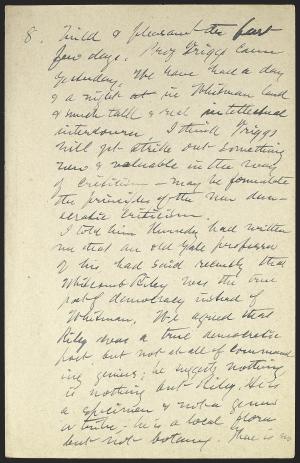 8. Mild & pleasant the past
few days. Prof Triggs came
yesterday. We have had a day
& a night at in Whitman land
& much talk & real intellectual
intercourse. I think Triggs
will yet strike out something
new & valuable in the way
of criticism — may be formulate
the principles of the new dem-
ocratic criticism.
I told him Kennedy had written
me that an old Yale professor
of his had said recently that
Whitcomb Riley was the true
poet of democracy instead of
Whitman. We agreed that
Riley was a true democratic
poet but not at all of command
ing genius; he suggests nothing
is nothing but Riley. He is
a specimen & not a genus
or tribe; he is a local flora
but not botany. There is no